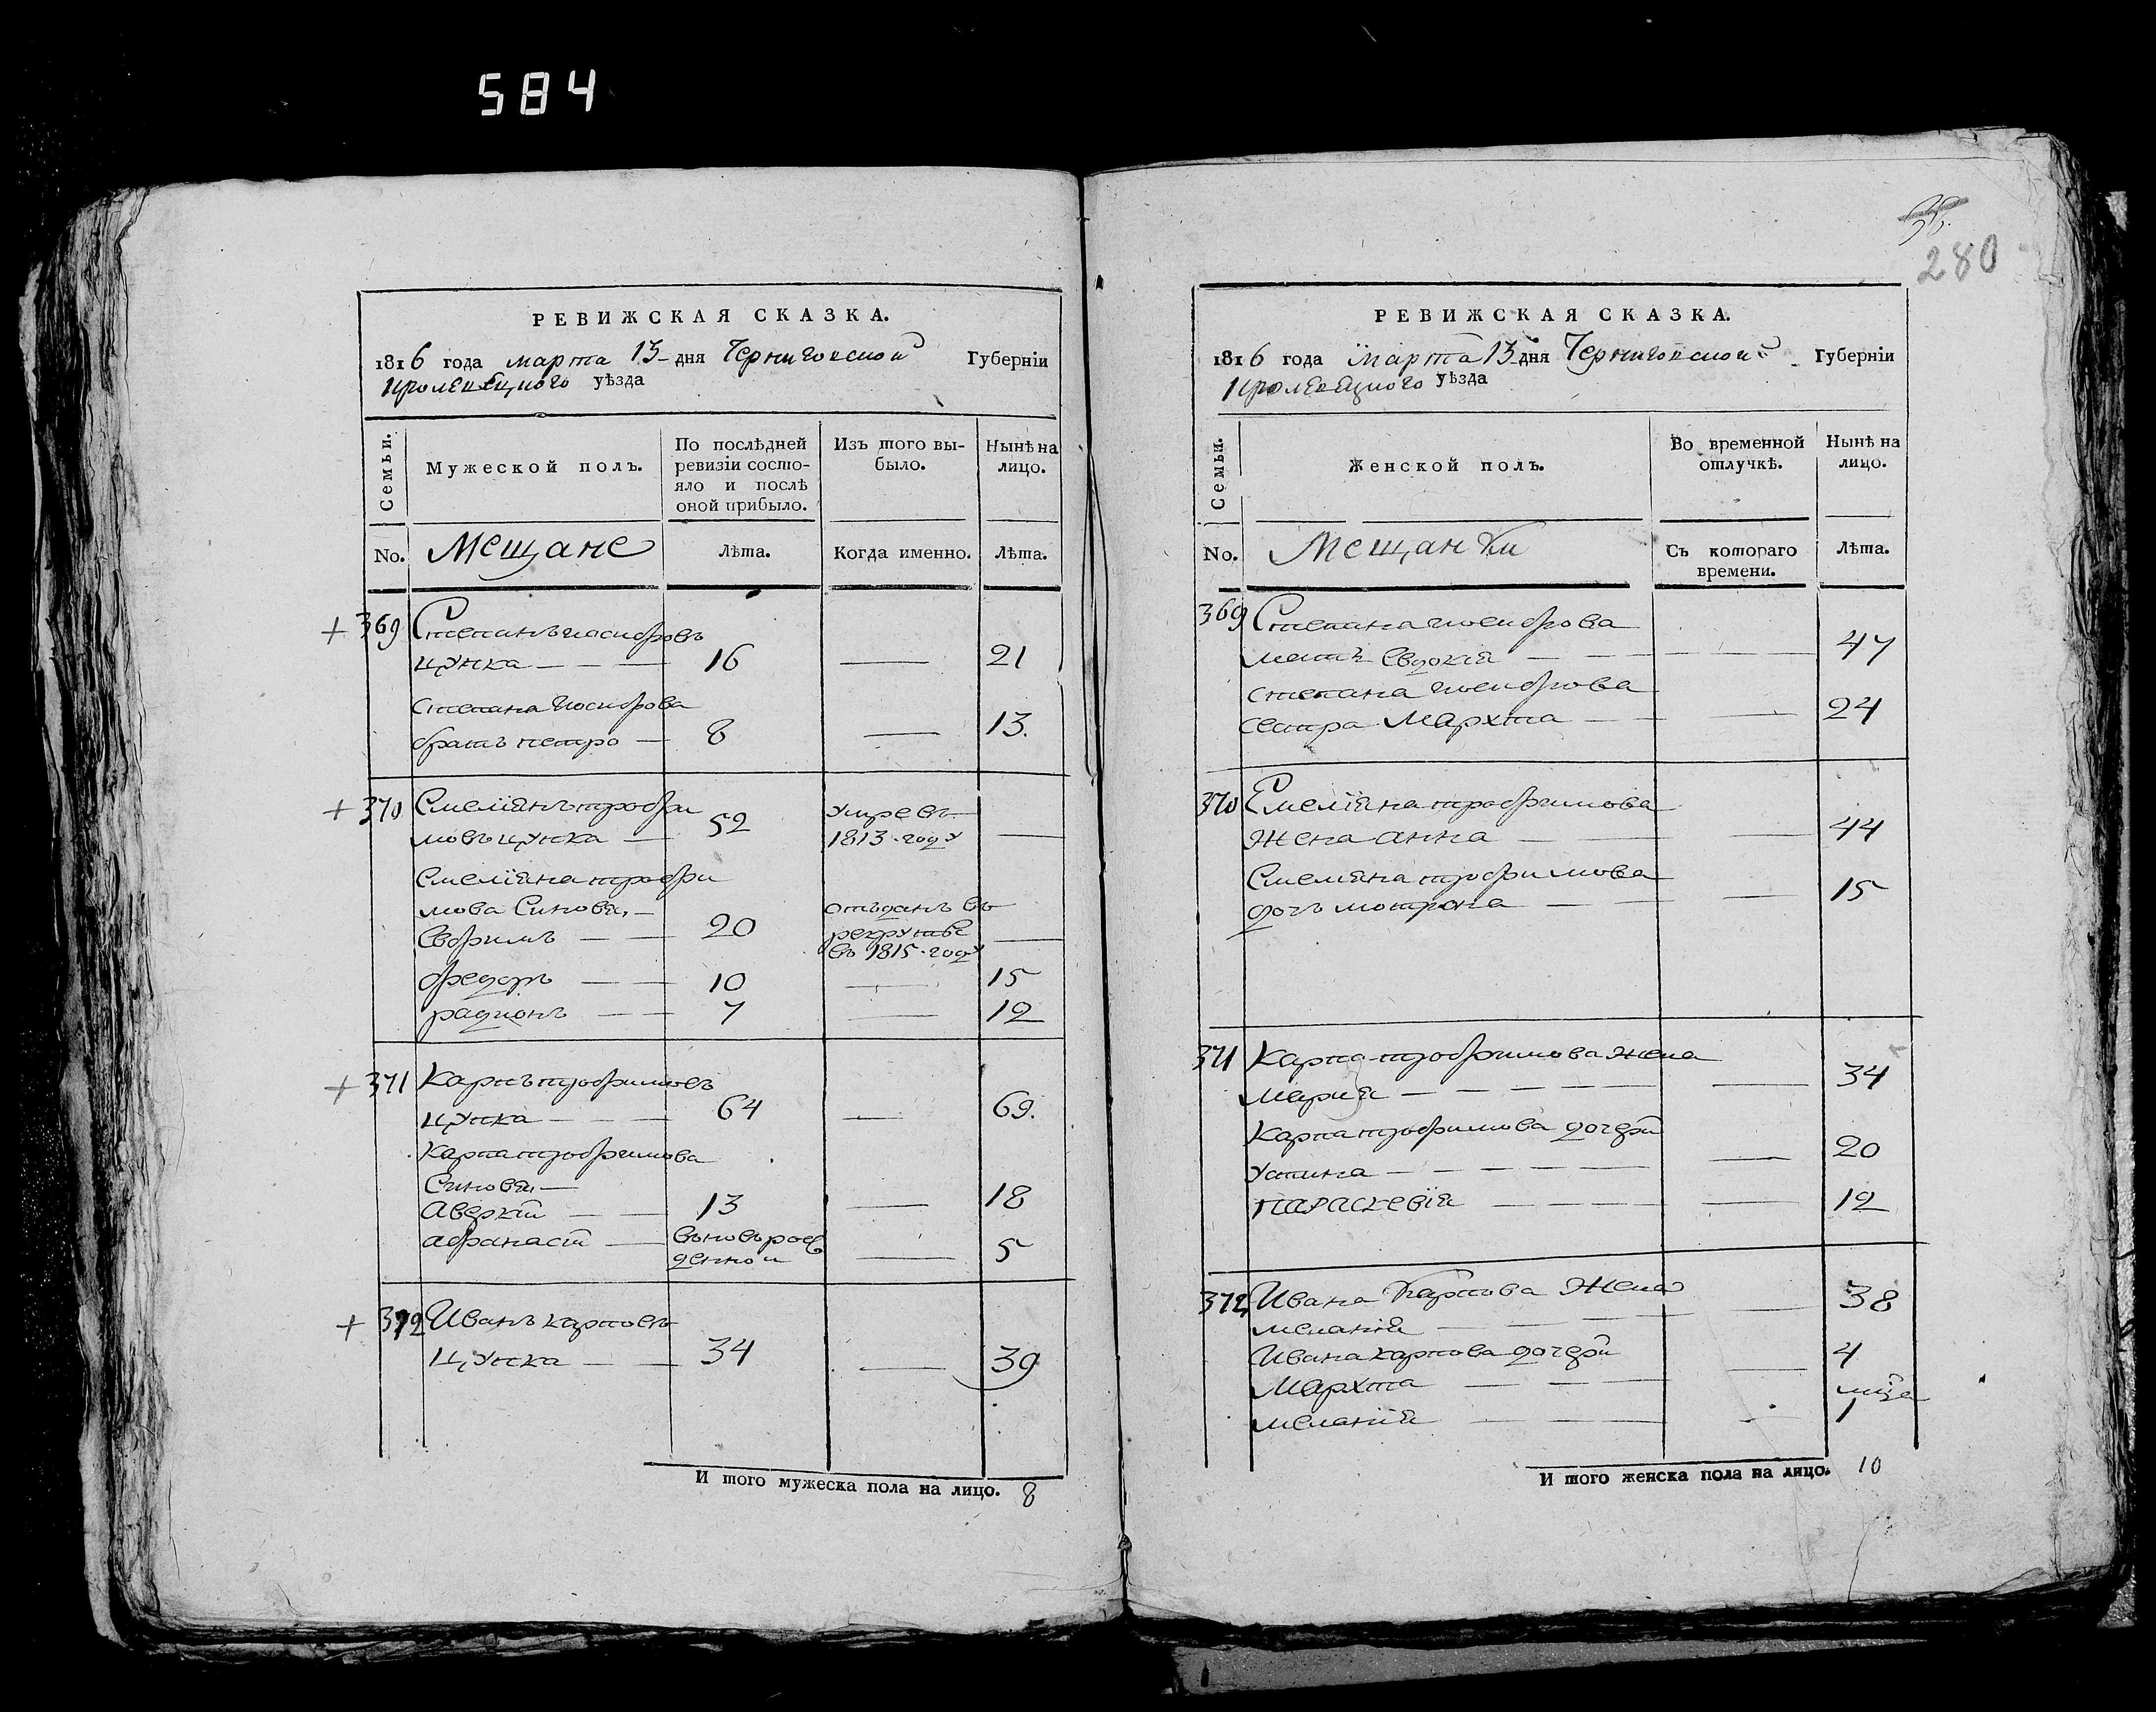 584
РЕВИЖСКАЯ СКАЗКА.
1816 года марта 13 дня Черниговской Губерніи
кролевецкого уѣзда
Семьи.
Мужеской полъ.
По послѣдней
ревизіи состо-
яло и послѣ
оной прибыло.
Изъ того вы-
было.
Нынѣ на
лицо.
No.
Мещане
Лѣта.
Когда именно.
Лѣта.
+ 369 Степанъ иосифовъ
цупка — — — 16 — 21
степана иосифова
братъ петро — 8 — 13.
+ 370 Емелїянъ трофи
мовъ цупка — 52 умре въ 1813 году —
Емелїяна трофи
мова Синовя, —
Евфимъ — — 20 отъданъ въ рекруты въ 1815 году —
федоръ — — 10 — 15
радионъ — — 7 — 12
+ 371 Карпъ трофимовъ
цупка — — — 64 — 69.
Карпа трофимова
Синовя, —
аверкїй — — 13 — 18
афанасїй — въновь рож денной — 5
+ 372 Иванъ карповъ
цупка — — 34 — 39
И того мужеска пола на лицо. 8
38.
280
РЕВИЖСКАЯ СКАЗКА.
1816 года марта 13 дня Черниговской Губерніи
кролевецкого уѣзда
Семьи.
Женской полъ.
Во временной
отлучкѣ.
Нынѣ на
лицо.
No.
Мещанки
Съ котораго
времени.
Лѣта.
369 Степана иосифова
мать Евдокїя — — — 47
степана иосифова
сестра Мархта — — 24
370 Емелїяна трофимова
жена анна — — 44
Емелїяна трофимова
дочь мотрона — — — 15
371 Карпа трофимова жена
марїя — — — — — 34
Карпа трофимова дочери
устина — — — — — 20
параскевїя — — — — 12
372 Ивана Карпова Жена
меланїя — — — — 38
Ивана карпова дочери
Мархта — — — — 4
меланїя — — — — 1
И того женска пола на лицо. 10